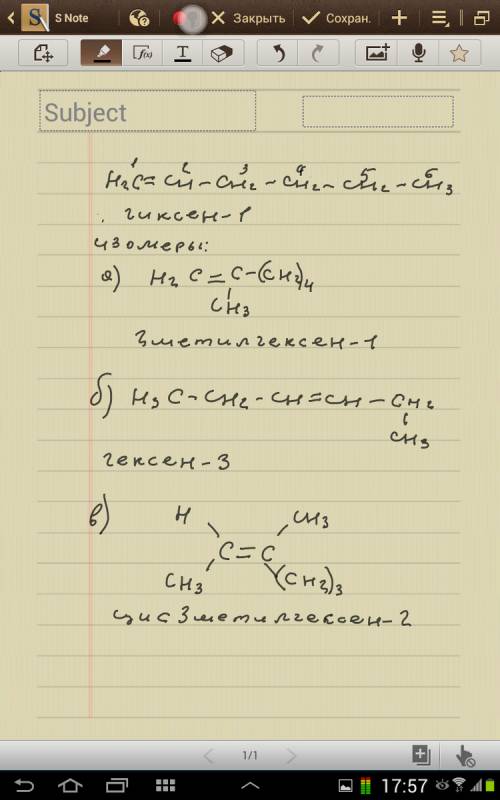 S Note
Закрыть
Сохран.
f(x)
T
Subject
1 2 3 4 5 6
H2C=CH-CH2-CH2-CH2-CH3
гиксен-1
изомеры:
а) H2C=C-(CH2)4
CH3
3метилгексен-1
б) H3C-CH2-CH=CH-CH2
CH3
гексен-3
в) H CH3
C=C
CH3 (CH2)3
цис3метилгексен-2
1/1
17:57